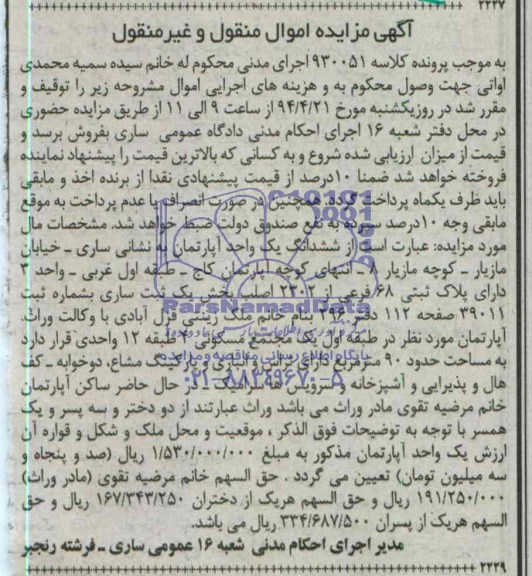 ۲۲۲۷
آگهی مزایده اموال منقول و غیرمنقول
به موجب پرونده کلاسه ۹۳۰۰۵۱ اجرای مدنی محکوم له خانم سیده سمیه محمدی
اواتی جهت وصول محکوم به و هزینه های اجرایی اموال مشروحه زیر را توقیف و
مقرر شد در روزیکشنبه مورخ ۹۴/۴/۲۱ از ساعت ۹ الی ۱۱ از طریق مزایده حضوری
در محل دفتر شعبه ۱۶ اجرای احکام مدنی دادگاه عمومی ساری بفروش برسد و
قیمت از میزان ارزیابی شده شروع و به کسانی که بالاترین قیمت را پیشنهاد نماینده
فروخته خواهد شد ضمنا ۱۰درصد از قیمت پیشنهادی نقدا از برنده اخذ و مابقی
باید ظرف یکماه پرداخت گردد. همچنین در صورت انصراف یا عدم پرداخت به موقع
مابقی وجه ۱۰درصد سپرده به نفع صندوق دولت ضبط خواهد شد. مشخصات مال
مورد مزایده: عبارت است از ششدانگ یک واحد آپارتمان به نشانی ساری ـ خیابان
مازیار ـ کوچه مازیار ۸ ـ انتهای کوچه آپارتمان کاج ـ طبقه اول غربی ـ واحد ۳
دارای پلاک ثبتی ۶۸ فرعی از ۲۳۰۲ اصلی بخش یک ثبت ساری بشماره ثبت
۳۹۰۱۱ صفحه ۱۱۲ دفتر ۲۹۶ بنام خانم ملک زینتی قزل آبادی با وکالت وراث.
آپارتمان مورد نظر در طبقه اول یک مجتمع مسکونی ۴ طبقه ۱۲ واحدی قرار دارد
به مساحت حدود ۹۰ مترمربع دارای پارکینگ مشاع، دوخوابه ـ کف
هال و پذیرایی و آشپزخانه وسرویس ها سرامیک ـ در حال حاضر ساکن آپارتمان
خانم مرضیه تقوی مادر وراث می باشد وراث عبارتند از دو دختر و سه پسر و یک
همسر با توجه به توضیحات فوق الذکر ، موقعیت و محل ملک و شکل و قواره آن
ارزش یک واحد آپارتمان مذکور به مبلغ ۱/۵۳۰/۰۰۰/۰۰۰ ریال (صد و پنجاه و
سه میلیون تومان) تعیین می گردد . حق السهم خانم مرضیه تقوی (مادر وراث)
۱۹۱/۲۵۰/۰۰۰ ریال و حق السهم هریک از دختران ۱۶۷/۳۴۳/۲۵۰ ریال و حق
السهم هریک از پسران ۳۳۴/۶۸۷/۵۰۰ ریال می باشد.
مدیر اجرای احکام مدنی شعبه ۱۶ عمومی ساری ـ فرشته رنجبر
۲۲۲۹
ParsNamadData
پایگاه اطلاع رسانی مناقصه و مزایده
۰۲۱-۸۸۳۴۹۶۷۰-۵